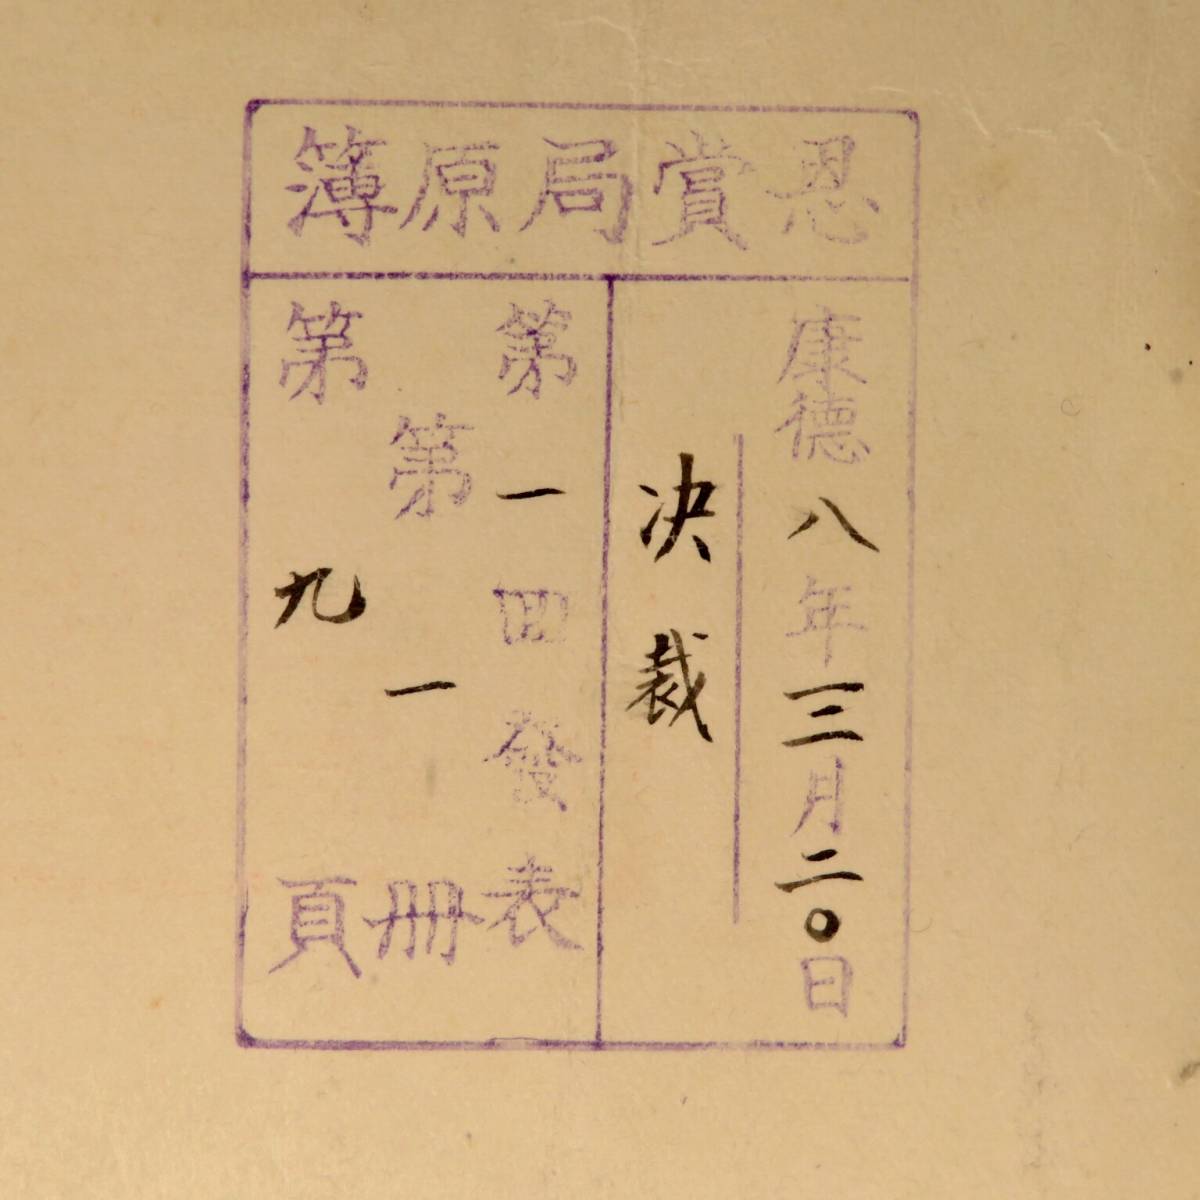 恩賞局原簿
康德八年三月二〇日
決裁
第一回發表
第一冊
第九頁